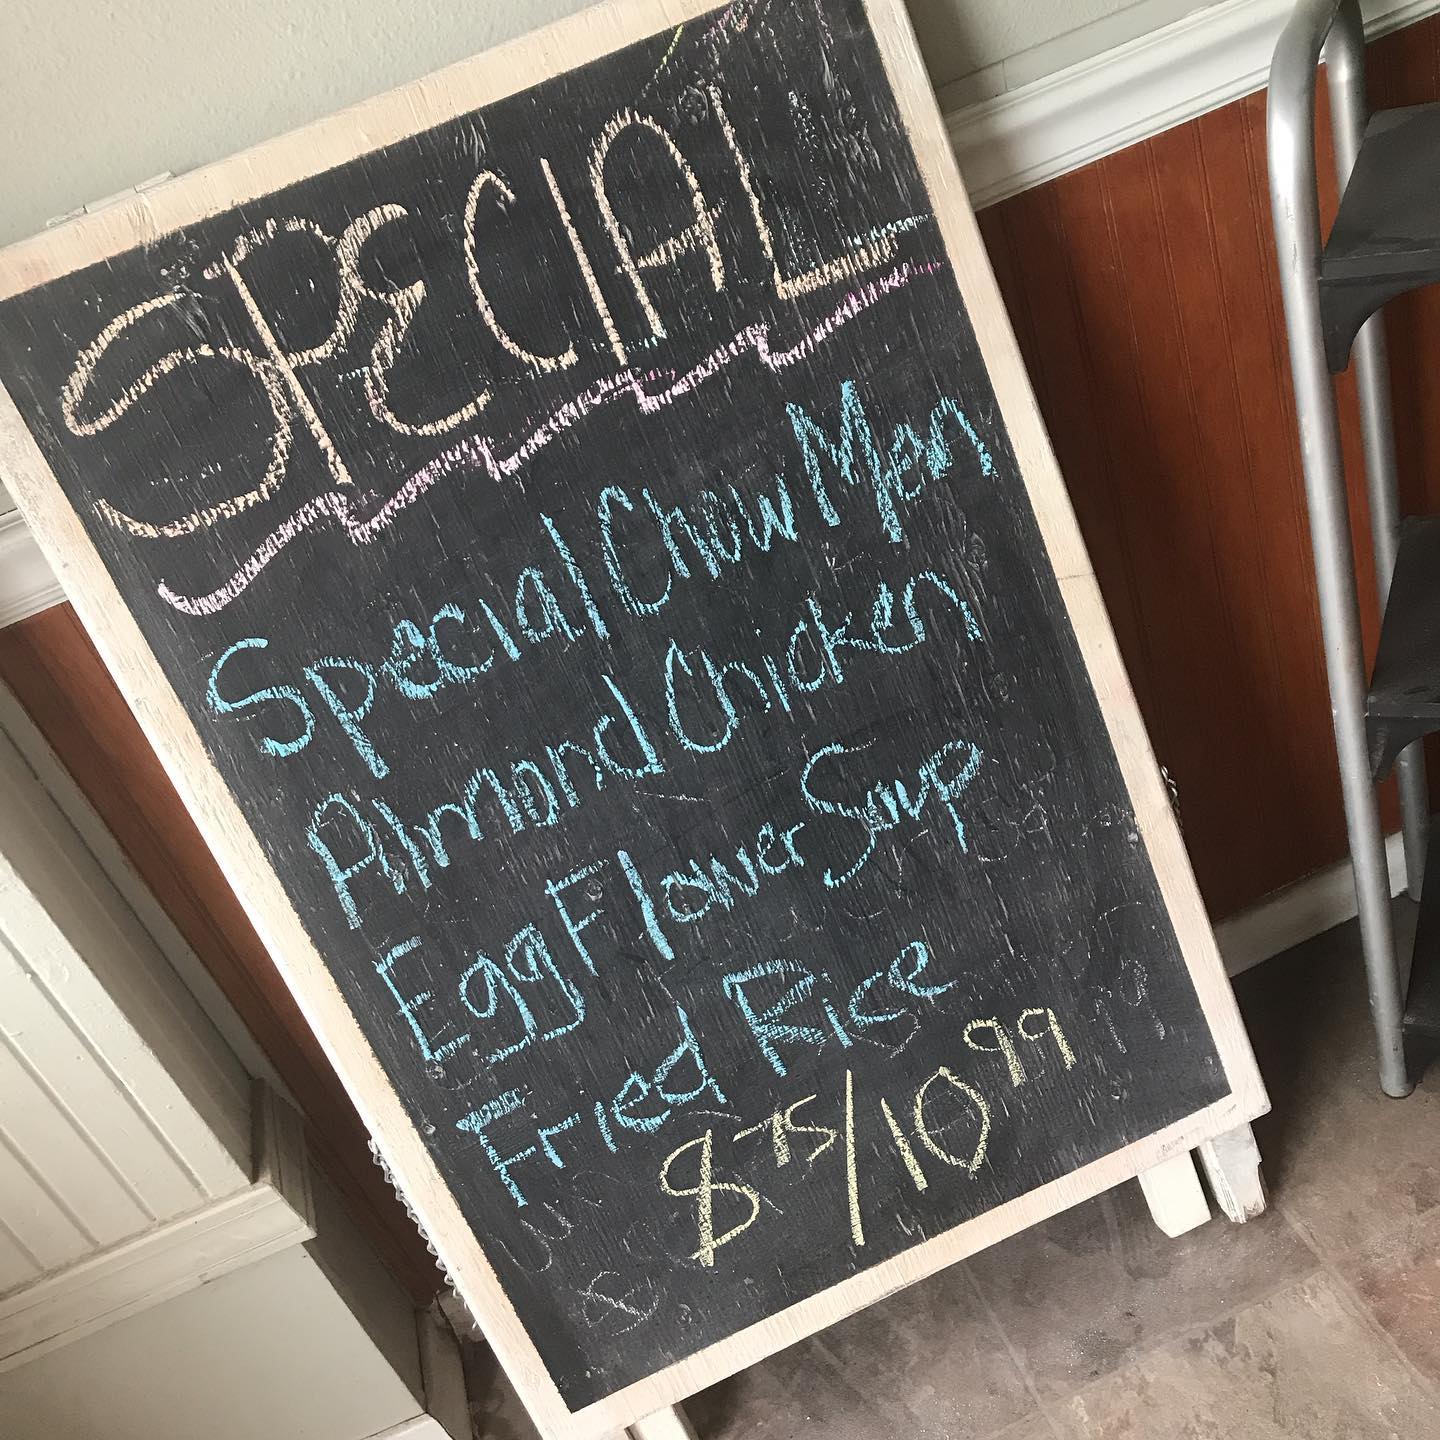 SPECIAL
Special Chow Men
Almond Chicken
Egg Flower Soup
Fried Rise
8 75/10 99